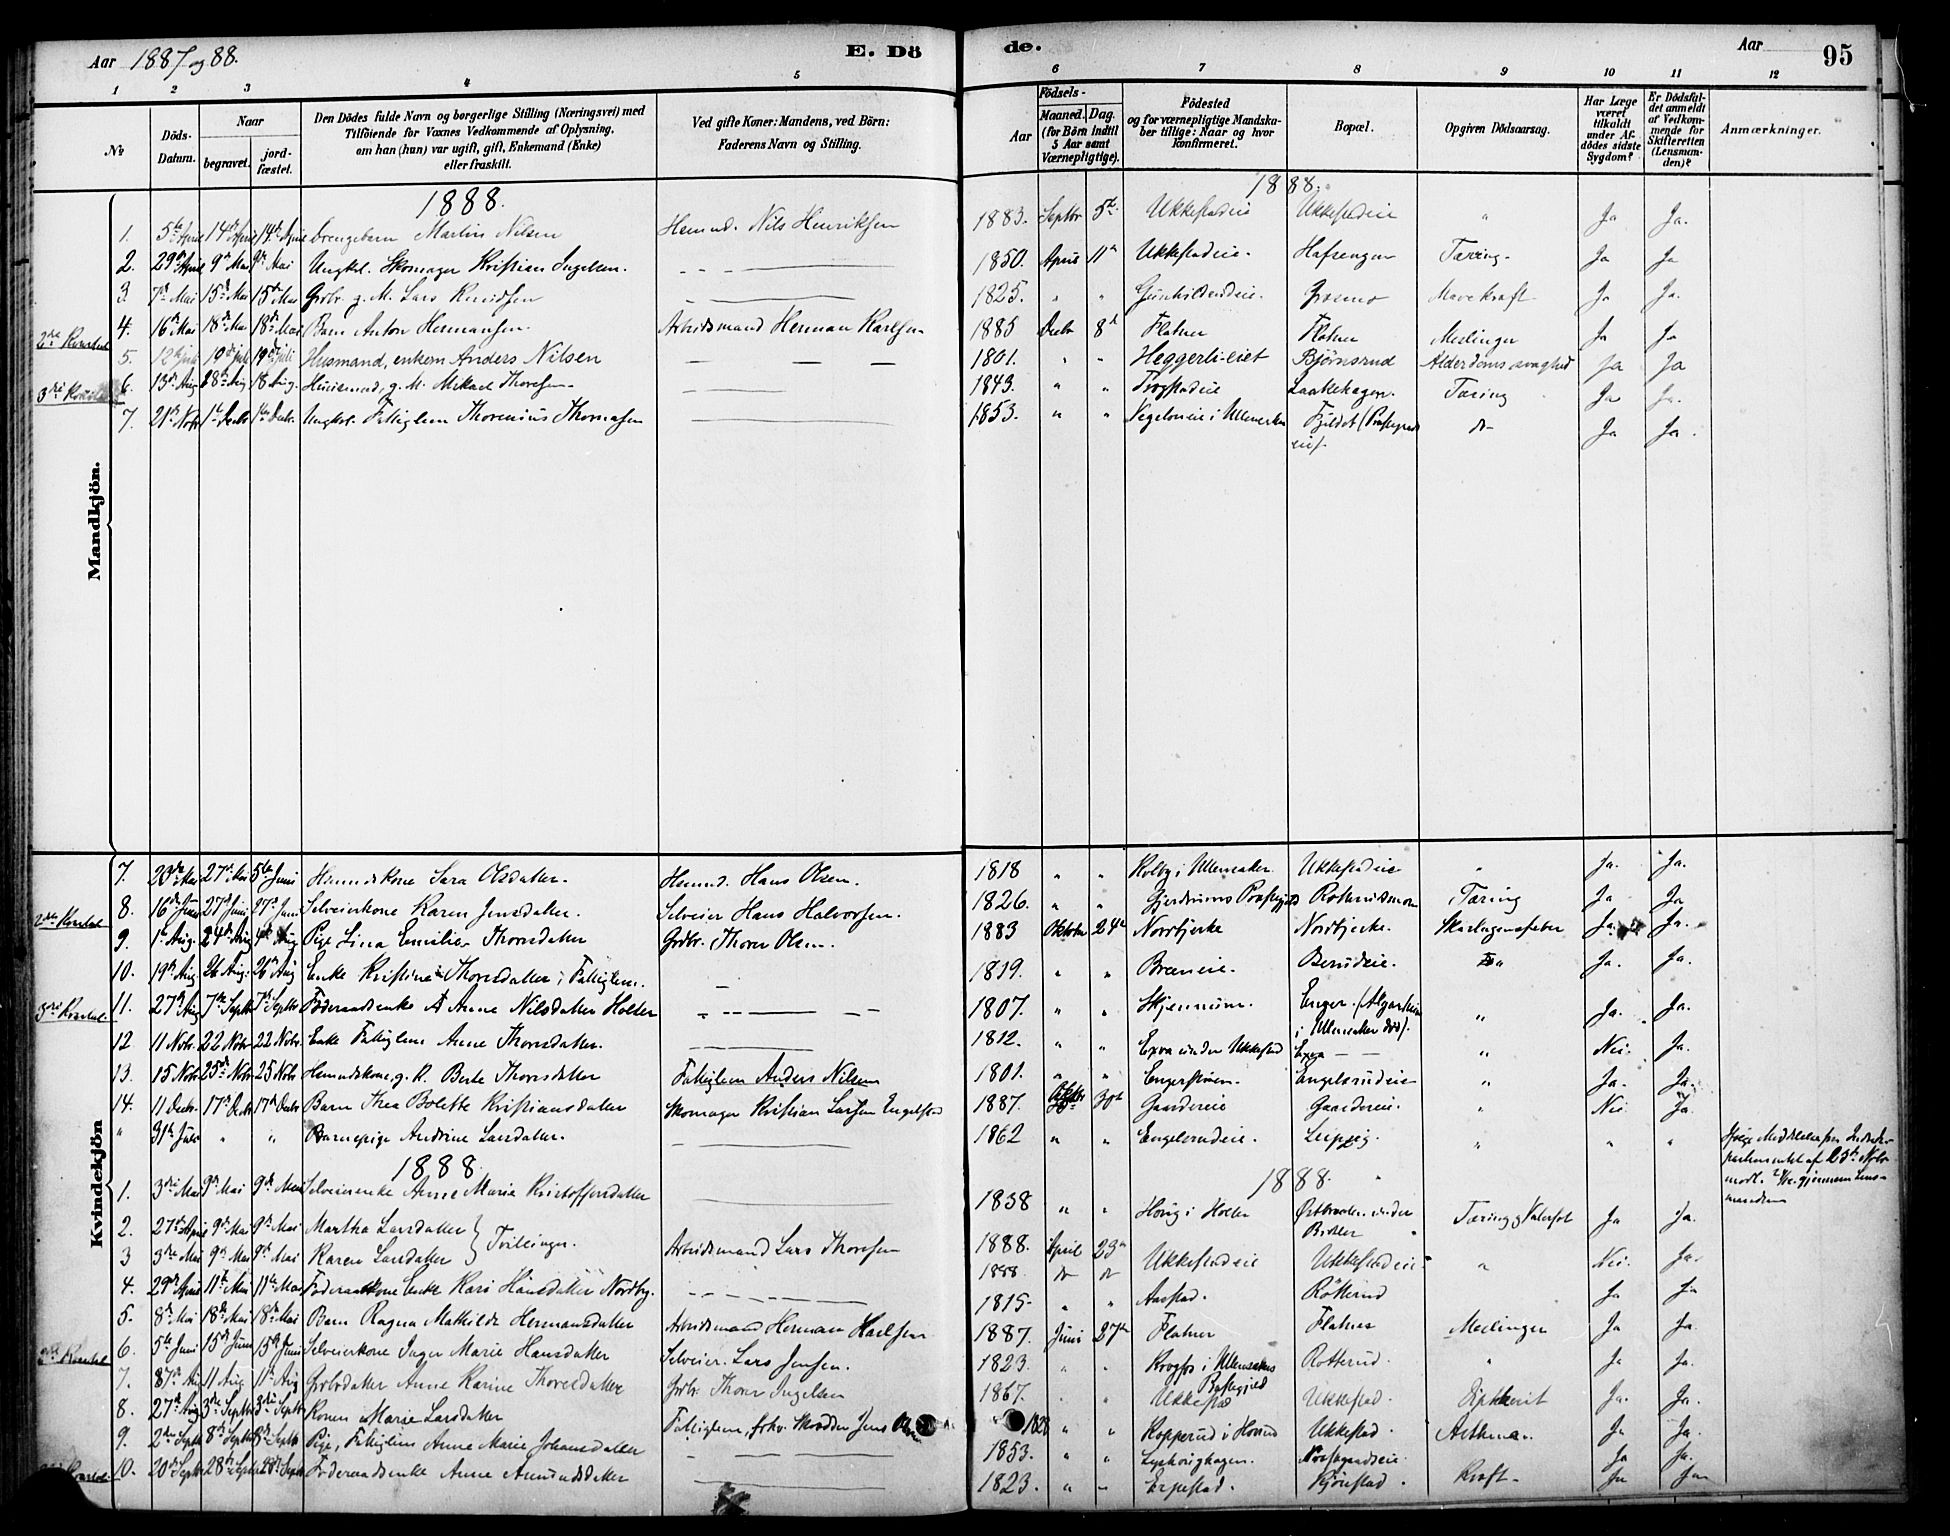 Aar 1887 og 88.
E. Dö
de.
Aar
95
1 2 3 4 5 6 7 8 9 10 11 12
No
Döds-Datum.
Naar
begravet.
jord-fæstet.
Den Dödes fulde Navn og borgerlige Stilling (Næringsvei) med
Tilföiende for Voxnes Vedkommende af Oplysning,
om han (hun) var ugift, gift, Enkemand (Enke)
eller fraskilt.
Ved gifte Koner: Mandens, ved Börn:
Faderens Navn og Stilling.
Födsels-
Aar
Maaned. Dag.
(for Börn indtil
5 Aar samt
Værnepligtige).
Födested
og for værnepligtige Mandska-
ber tillige: Naar og hvor
konfirmeret.
Bopæl.
Opgiven Dödsaarsag.
Har Læge
været
tilkaldt
under Af-
dödes sidste
Sygdom?
Er Dödsfal-
det anmeldt
af Vedkom-
mende for
Skifteretten
(Lensman-
den)?
Anmærkninger.
Mandkjön.
1888. 1888.
1. 5te April 14de April 14de April Drengebarn Martin Nilsen Husmd. Nils Henriksen 1883. Septbr 5te Ukkestadeie Ukkestadeie " Ja Ja.
2. 29de April 9de Mai 9de Mai Ungkl. Skomager Kristian Ingelsen. 1850. April 11te Ukkestadeie. Hafsengen Tæring. Ja Ja
3. 7de Mai 15de Mai 15de Mai Grbr. g. M. Lars Knudsen 1825. " " Gunhildrudeie. Grasmo Mavekræft. Ja Ja.
4. 16de Mai 18de Mai 18de Mai Barn Anton Hermansen. Arbeidsmand Herman Karlsen 1885 Decbr 8de Flatner Flatner Meslinger Ja Ja
2det Kvartal
5. 12te juli 19de juli 19de juli Husmand, enkem Anders Nilsen 1801. " " Heggerli-eiet Björnsrud Alderdomssvaghed Ja Ja
6. 13de Aug 18de Aug 18 Aug. Huusmand, g. M. Mikael Thoresen 1843. " " Trogstadeie Laakehagen. Tæring Ja Ja.
3die Kvartal
7. 21de Nobr 1te Decbr 1te Decbr. Ungkl. Fattiglem Thorenius Thomasen 1853. " " i Ullensaker Fjeldet (Præstegaards eie). do Ja Ja.
Kvindekjön
7. 23de Mai 27de Mai 5te Juni Husmdskone Sara Olsdatter. Husmd. Hans Olsen. 1818 " " Kolby i Ullensaker Ukkestadeie " Ja. Ja.
8. 16de Juni 27de Juni 27de Juni Selveierkone Karen Jensdatter. Selveier Hans Halvorsen. 1826. " " Gjerdrums Præstegjeld Rotterudsmoen Tæring Ja Ja
2det Kvartal
9. 1te Aug. 24de Aug Aug Pige Lina Emilie Thorsdatter Grdbr. Thorer Olsen. 1883 Oktober 24de Nordbjerke Nordbjerke. Skarlagensfeber Ja. Ja.
10. 19de Aug 26 Aug. 26de Aug Enke Kristine Thorsdatter i Fattiglem. 1819. " " Bræneie. Berudeie. " Ja. Ja.
11. 27de Aug 7de Septbr 7de Septbr Föderaadsenke Anne Nilsdatter Holter 1807. " " Skjennum. Enger. ( i Ullensaker död). " Ja. Ja.
3die Kvartal
12 11 Nobr. 22 Nobr 22 Nobr Enke Fattiglem Anne Thorsdatter. 1812. " " Exva under Ukkestad Exva " Nei. Ja.
13. 15 Nobr 25de Nobr 25 Nobr Husmdskone, g. K. Berte Thorsdatter Fattiglem Anders Nilsen 1801. " " Engerstuen. Engelsrudeie " Ja. Ja.
14. 11 Decbr. 17de Decbr 17de Decbr Barn Thea Bolette Kristiansdatter Skomager Kristian Larsen Engelstad 1887. 30te Gaardereie Gaardereie. " Nei Ja.
" 31te Juli " " Barnepige Andrine Larsdatter. 1862 " " Engelsrudeie. Leipzig. " " " Ifölge Meddelelse fra Indrede-
partementet af 25de Novbr
modt. gjennem Lens-
manden
1888 1888.
1. 3die Mai 9de Mai 9de Mai Selveierenke Anne Marie Kristoffersdatter 1838 " " Hönig i Holter Östbraaten under Brotter Tæring & Vatersot Ja Ja.
2. 27de April 9de Mai 9de Mai Martha Larsdatter } Tvillinger. Arbeidsmand Lars Thoresen 1888. April 23de Ukkestadeie Ukkestadeie " Nei. Ja.
3 3die Mai 9de Mai 9de Mai Karen Larsdatter 1888. do do
4. 29de April 11te Mai 11te Mai Föderaadskone Enke Kari Hansdatter Nordby. 1815. " " Aastad. Rötterud Ja Ja
5. 8de Mai 18de Mai 18de Mai Barn Ragna Mathilde Hermansdatter Arbeidsmand Herman Karlsen 1887. Juni 27de Flatner Flatner Meslinger Ja Ja.
6. 5te Juni 15de Juni 15de Juni Selveierkone Inger Marie Hansdatter Selveier. Lars Jensen. 1823. " " Krogfos i Ullensakers Præstegjeld Rotterud. " Ja Ja.
2det Kvartal
7. 8de Aug 11 Aug 11te Aug Grbrdatter Anne Karine Thorersdatter Grbr Thorer Ingelsen 1867. " " Ukkestad Ukkestad. Difterit Ja. Ja.
8. 27de Aug 3die Septbr 3die Septbr Konen Marie Larsdatter Fattiglem, fhv. Skrædder Jens 1828 " " Kopperud i Hovind Ukkestad. Asthma. Ja Ja.
9. 2den Septbr 8de Septbr 8de Septbr Pige, Fattiglem Anne Marie Johansdatter 1853. " " Præstegaardseie Ja Ja.
10. 20de Septbr 28de Septbr 28de Septbr Föderaadsenke Anne Amundsdatter 1823. " " Erpestad. Kjörstad Kræft. Ja Ja
3die Kvartal